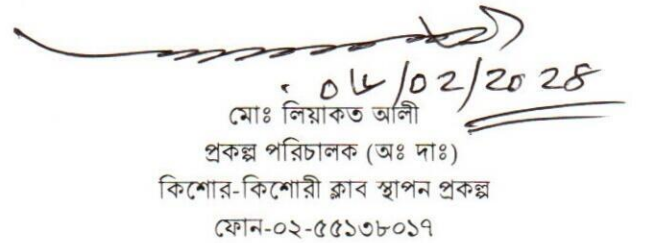 ০৮/০২/২০২৪
মোঃ লিয়াকত আলী
প্রকল্প পরিচালক (অঃ দাঃ)
কিশোর-কিশোরী ক্লাব স্থাপন প্রকল্প
ফোন-০২-৫৫১৩৮০১৭